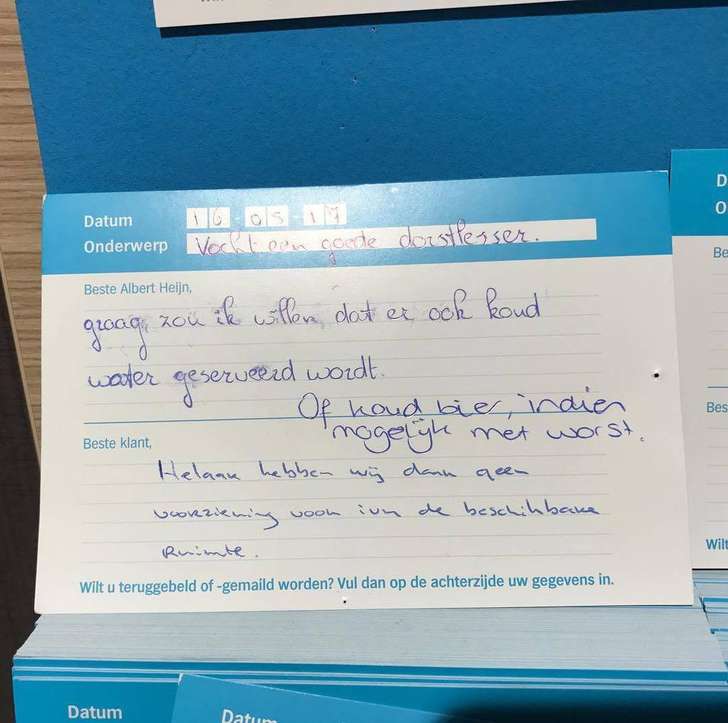 Datum 16-05-17
Onderwerp Vocht een goede dorstlesser.
Beste Albert Heijn,
graag zou ik willen dat er ook koud
water geserveerd wordt.
Of koud bier, indien
mogelijk met worst.
Beste klant,
Helaas hebben wij daar geen
voorziening voor ivm de beschikbare
Ruimte.
Wilt u teruggebeld of -gemaild worden? Vul dan op de achterzijde uw gegevens in.
D
O
Be
Bes
Wilt
Datum
Datum